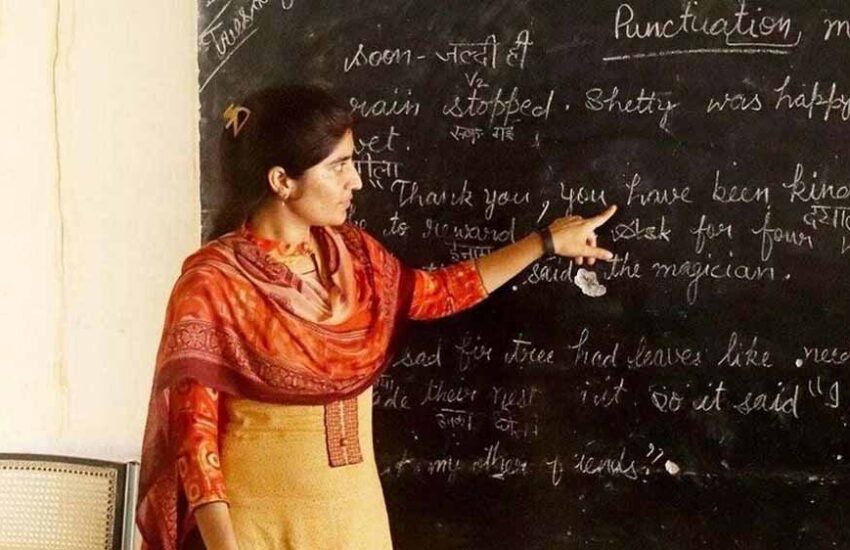 Punctuation, m
soon - जल्दी ही
V2
rain stopped. Shetty was happy
रुक गई
wet.
"Thank you, you have been kind
to reward. Ask for four
इनाम
said the magician.
sad fir tree had leaves like need
de their nest in it. So it said "I
उनका
my other friends."